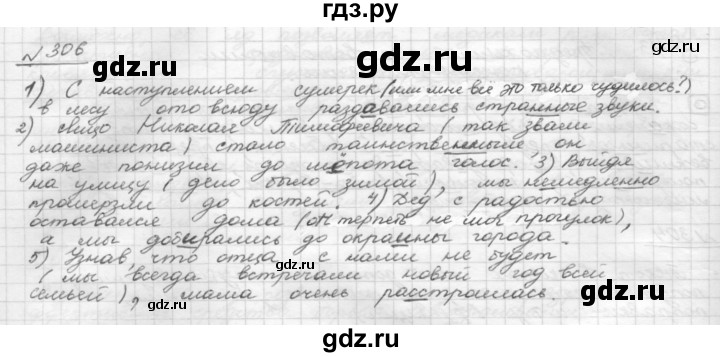 гдз.ру
№306
gdz.ru gdz.ru
1) С наступлением сумерек (или мне всё это только чудилось?)
в лесу ото всюду раздавались странные звуки.
2) Лицо Николая Тимофеевича (так звали
машиниста) стало таинственным он
даже понизил до шёпота голос. 3) Выйдя
на улицу (дело было зимой), мы немедленно
промёрзли до костей. 4) Дед с радостью
оставался дома (он терпеть не мог прогулок),
а мы добирались до окраины города.
5) Узнав, что отца с нами не будет
(мы всегда встречали новый год всей
семьей), мама очень расстроилась.
gdz.ru gdz.ru
gdz.ru